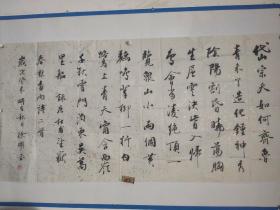 岱宗夫如何齊魯
青未了造化鍾神秀
陰陽割昏曉蕩胸
生層雲決眥入歸
鳥會當凌絕頂一
覽衆山小兩個黃
鸝鳴翠柳一行白
鷺上青天窗含西嶺
千秋雪門泊東吳萬
里船 唐杜甫望嶽
二首
歲次癸未